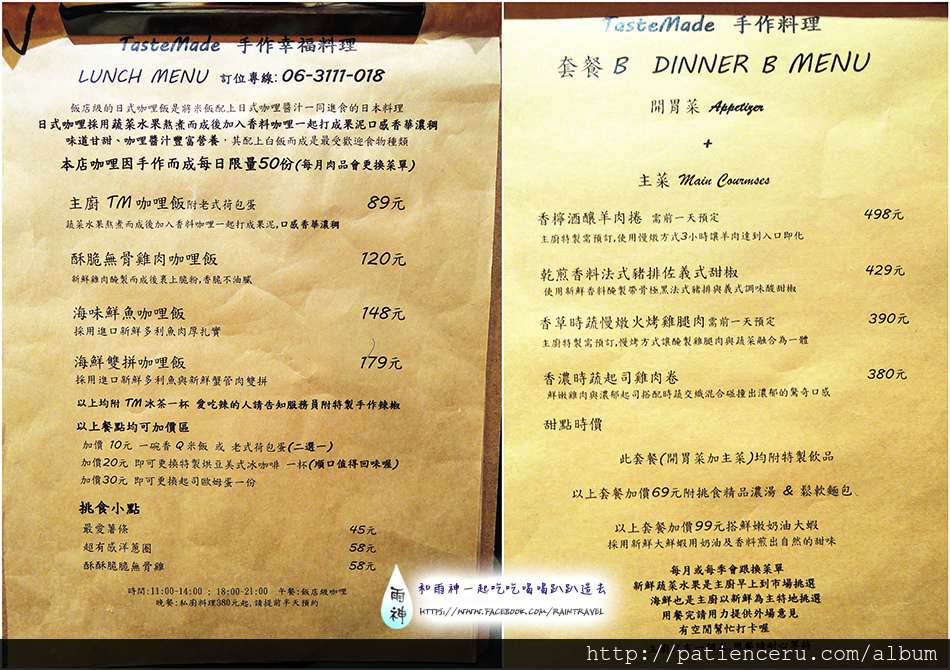 TasteMade 手作幸福料理
LUNCH MENU 訂位專線: 06-3111-018
飯店級的日式咖哩飯是將米飯配上日式咖哩醬汁一同進食的日本料理
日式咖哩採用蔬菜水果熬煮而成後加入香料咖哩一起打成果泥口感香華濃稠
味道甘甜、咖哩醬汁豐富營養，其配上白飯而成是最受歡迎食物種類
本店咖哩因手作而成每日限量50份(每月肉品會更換菜單)
主廚 TM 咖哩飯附老式荷包蛋 89元
蔬菜水果熬煮而成後加入香料咖哩一起打成果泥,口感香華濃稠
酥脆無骨雞肉咖哩飯 120元
新鮮雞肉醃製而成後裹上脆粉,香脆不油膩
海味鮮魚咖哩飯 148元
採用進口新鮮多利魚肉厚扎實
海鮮雙拼咖哩飯 179元
採用進口新鮮多利魚與新鮮蟹管肉雙拼
以上均附 TM 冰茶一杯 愛吃辣的人請告知服務員附特製手作辣椒
以上餐點均可加價區
加價 10元 一碗香 Q 米飯 或 老式荷包蛋(二選一)
加價20元 即可更換特製烘豆美式冰咖啡 一杯(順口值得回味喔)
加價30元 即可更換起司歐姆蛋一份
挑食小點
最愛薯條 45元
超有感洋蔥圈 58元
酥酥脆脆無骨雞 58元
時間:11:00-14:00 ; 18:00-21:00 午餐:飯店級咖哩
晚餐:私廚料理380元起,請提前半天預約
TasteMade 手作料理
套餐 B DINNER B MENU
開胃菜 Appetizer
+
主菜 Main Courmses
香檸酒釀羊肉捲 需前一天預定 498元
主廚特製需預訂,使用慢燉方式3小時讓羊肉達到入口即化
乾煎香料法式豬排佐義式甜椒 429元
使用新鮮香料醃製帶骨極黑法式豬排與義式調味酸甜椒
香草時蔬慢燉火烤雞腿肉需前一天預定 390元
主廚特製需預訂,慢烤方式讓醃製雞腿肉與蔬菜融合為一體
香濃時蔬起司雞肉卷 380元
鮮嫩雞肉與濃郁起司搭配時蔬交織混合碰撞出濃郁的驚奇口感
甜點時價
此套餐(開胃菜加主菜)均附特製飲品
以上套餐加價69元附挑食精品濃湯 & 鬆軟麵包
以上套餐加價99元搭鮮嫩奶油大蝦
採用新鮮大鮮蝦用奶油及香料煎出自然的甜味
每月或每季會跟換菜單
新鮮蔬菜水果是主廚早上到市場挑選
海鮮也是主廚以新鮮為主特地挑選
用餐完請用力提供外場意見
有空閒幫忙打卡喔
雨神
和雨神一起吃吃喝喝趴趴造去
HTTPS://WWW.FACEBOOK.COM/RAINTRAVEL
http://patienceru.com/album